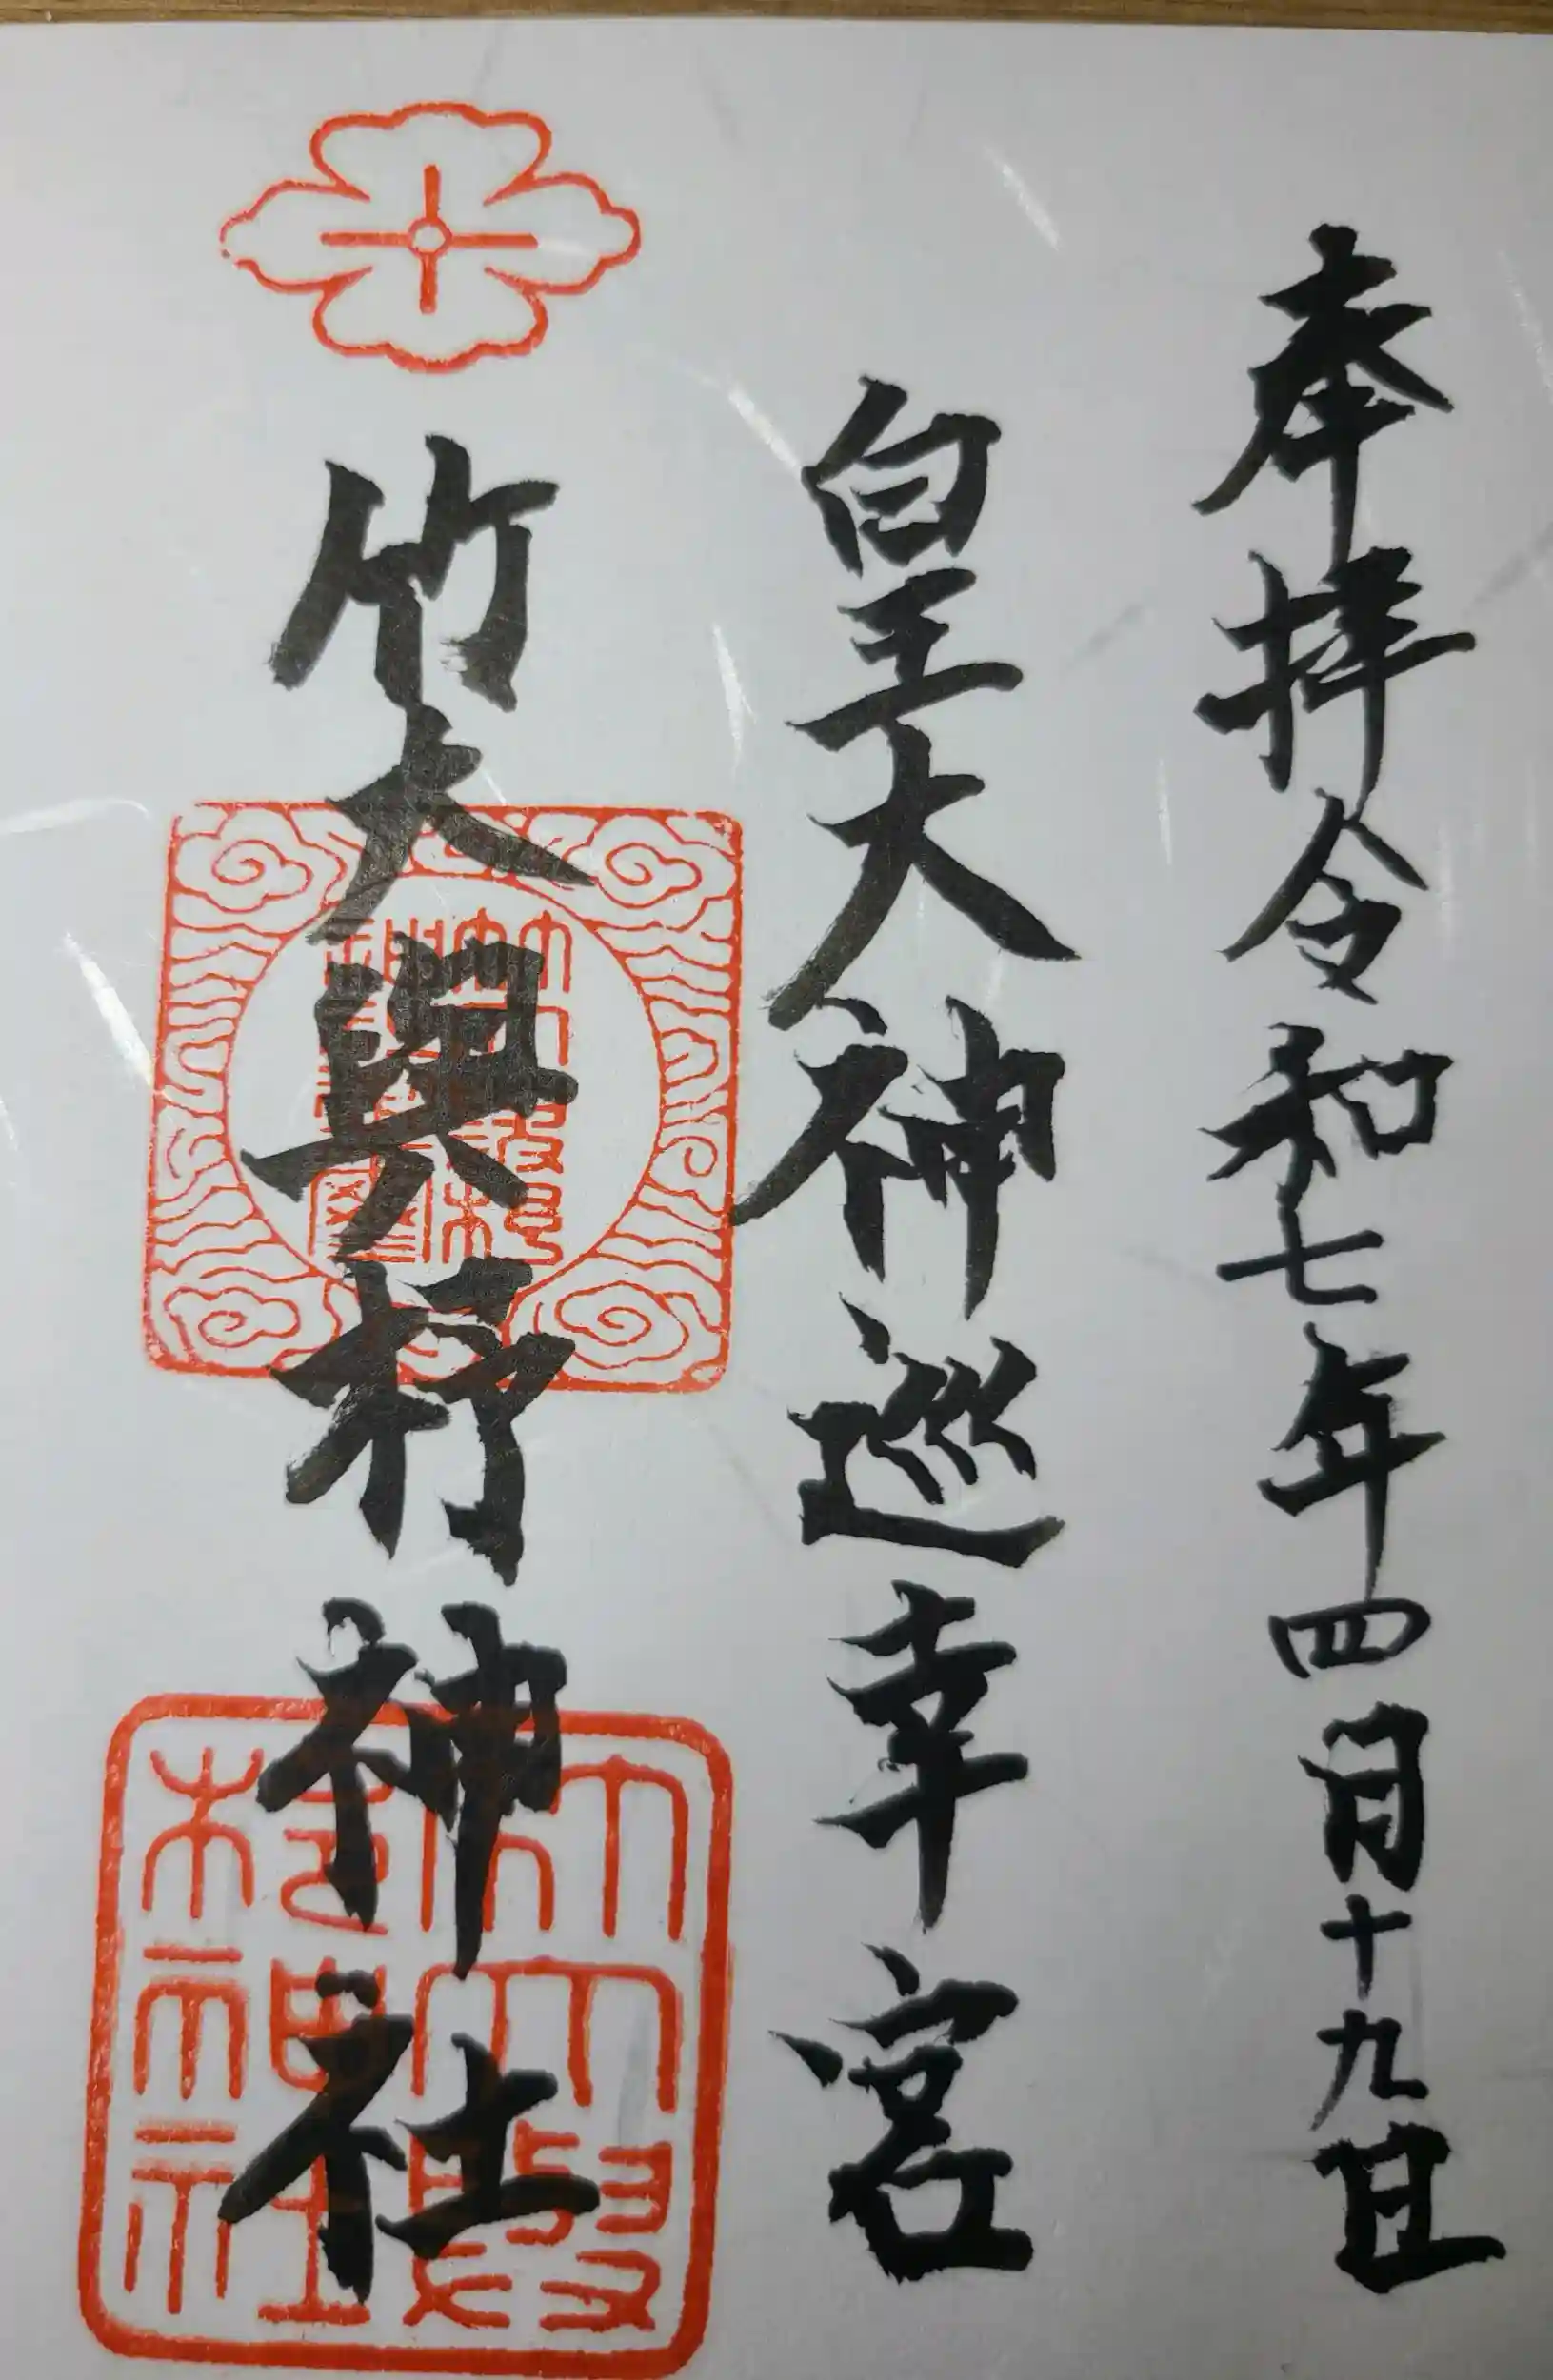 奉拝 令和七年四月十九日
皇大神巡幸宮
竹大與杼神社
竹大與
杼神社